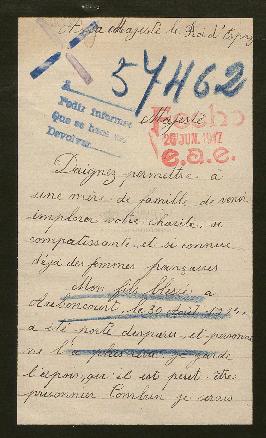 A Sa Majesté le Roi d'Espagne
57462
A
Pedir informes
Que se hace
Devolver
Majesté
Hecho
26 JUN. 1917
e.a.e.
Daignez permettre à
une mère de famille, de venir
implorer votre charité, si
compatissante, et si connue
déjà des femmes françaises
Mon fils blessé a
le 30 Août
a été porté disparu, et personne
ne l'a plus revu, je garde
l'espoir, qu'il est peut être
prisonnier Combien je serais